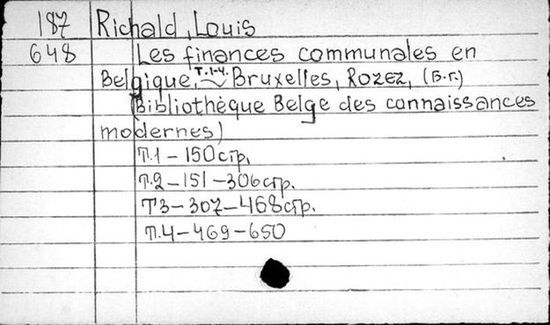 187 Richald, Louis
648 Les finances communales en
Belgique, т.1-4. Bruxelles, Rozez, (Б.г.)
(Bibliothèque Belge des connaissances
modernes)
Т.1 – 150 стр.
Т.2 – 151 – 306 стр.
Т3 – 307 – 468 стр.
Т.4 – 469 – 650